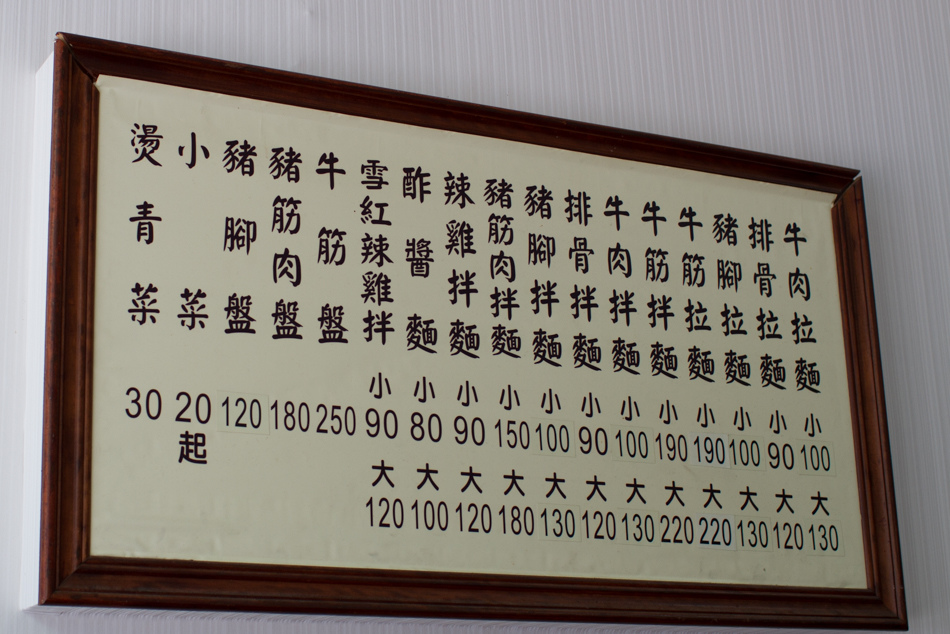 牛肉拉麵 小100 大130
排骨拉麵 小90 大120
豬腳拉麵 小100 大130
牛筋拉麵 小190 大220
牛筋拌麵 小190 大220
牛肉拌麵 小100 大130
排骨拌麵 小90 大120
豬腳拌麵 小100 大130
豬筋肉拌麵 小150 大180
辣雞拌麵 小90 大120
酢醬麵 小80 大100
雪紅辣雞拌 小90 大120
牛筋盤 250
豬筋肉盤 180
豬腳盤 120
小菜 20起
燙青菜 30